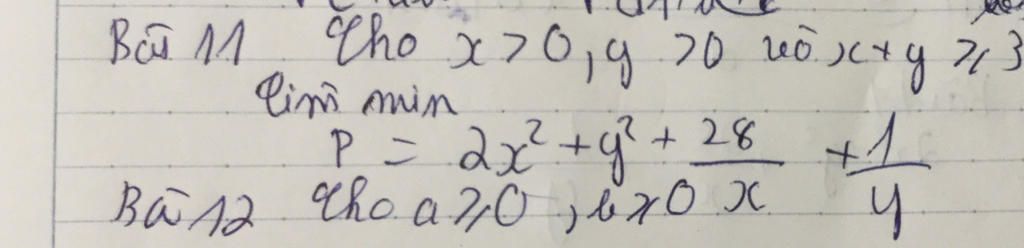 Bài 11 Cho x > 0, y > 0 và x + y ⩾ 3
Tìm min
P = 2x² + y² + 28/x + 1/y
Bài 12 Cho a ⩾ 0, b ⩾ 0